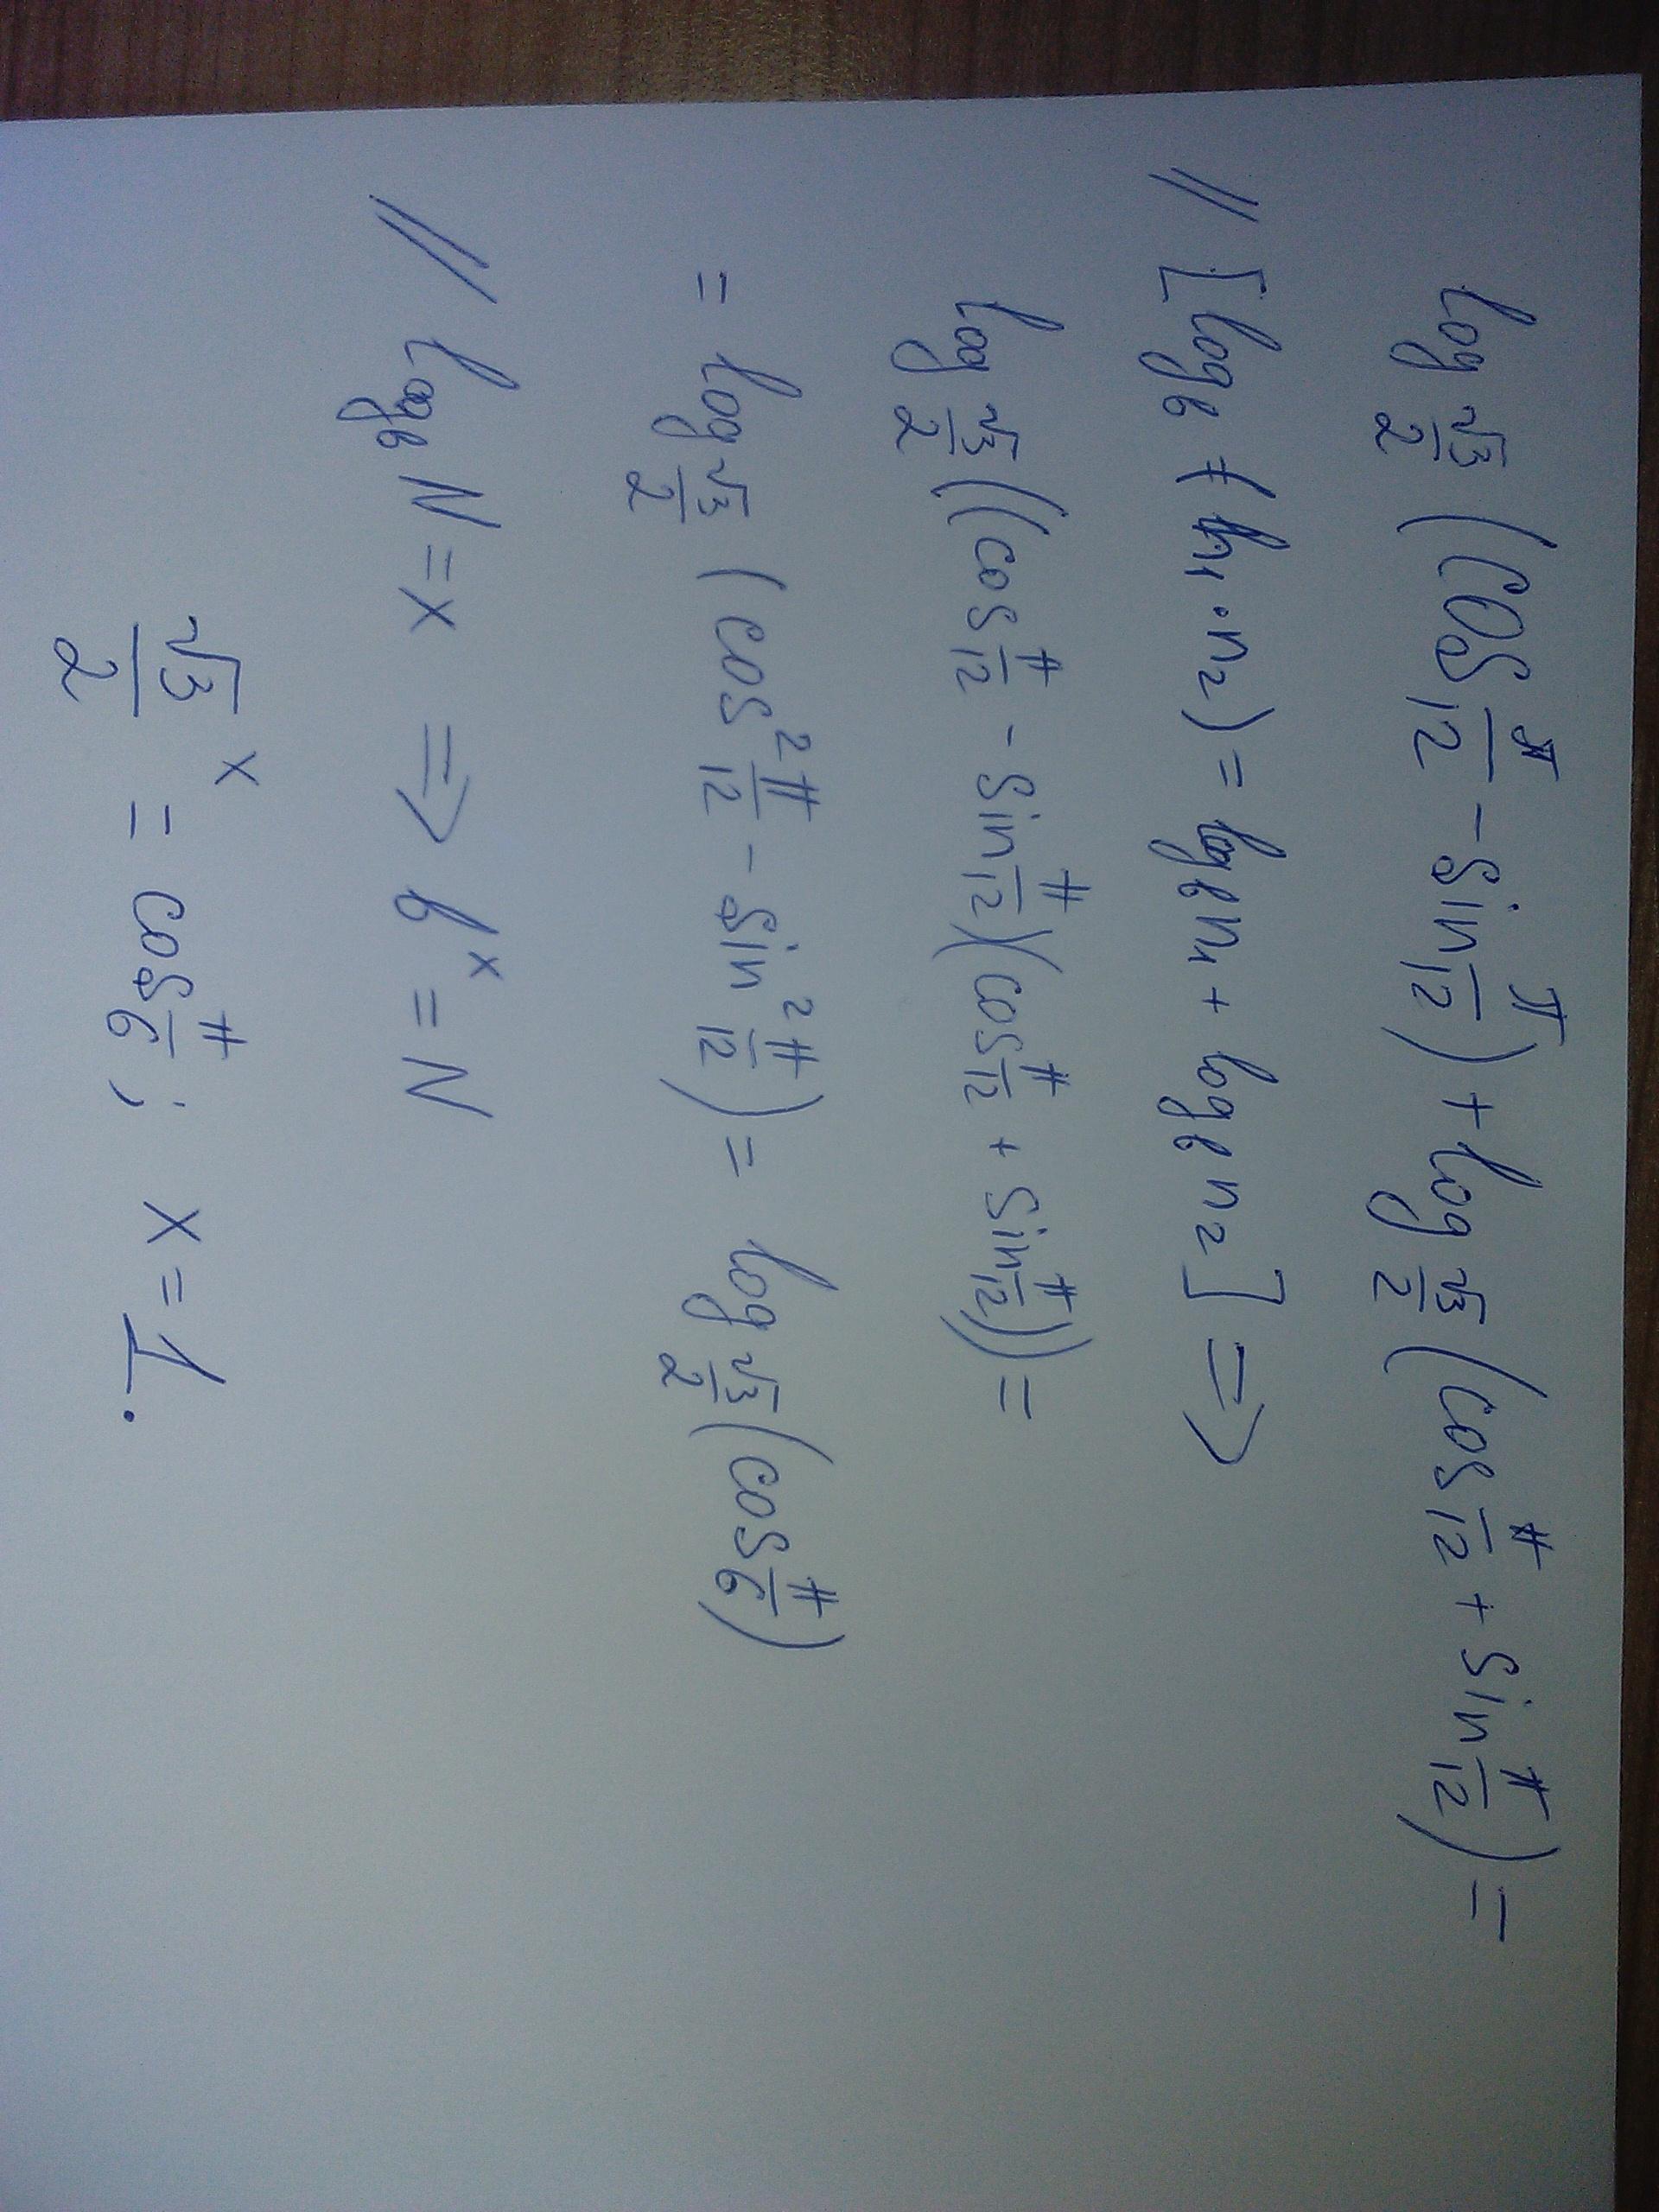 log √3/2 (cos π/12 - sin π/12) + log √3/2 (cos π/12 + sin π/12) =
// [log_b (n₁ · n₂) = log_b n₁ + log_b n₂] =>
log √3/2 ((cos π/12 - sin π/12)(cos π/12 + sin π/12)) =
= log √3/2 (cos² π/12 - sin² π/12) = log √3/2 (cos π/6)
// log_b N = x => b^x = N
√3/2^x = cos π/6 ; x = 1.